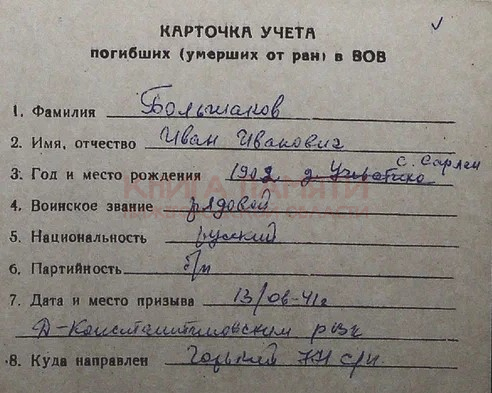 КАРТОЧКА УЧЕТА
погибших (умерших от ран) в ВОВ
1. Фамилия Большаков
2. Имя, отчество Иван Иванович
с. Сарлей
3. Год и место рождения 1902
КНИГА ПАМЯТИ
4. Воинское звание рядовой
ОБЛАСТИ
5. Национальность русский
6. Партийность б/п
7. Дата и место призыва 13/06-41г
Д-Константиновским рвк
8. Куда направлен Горький